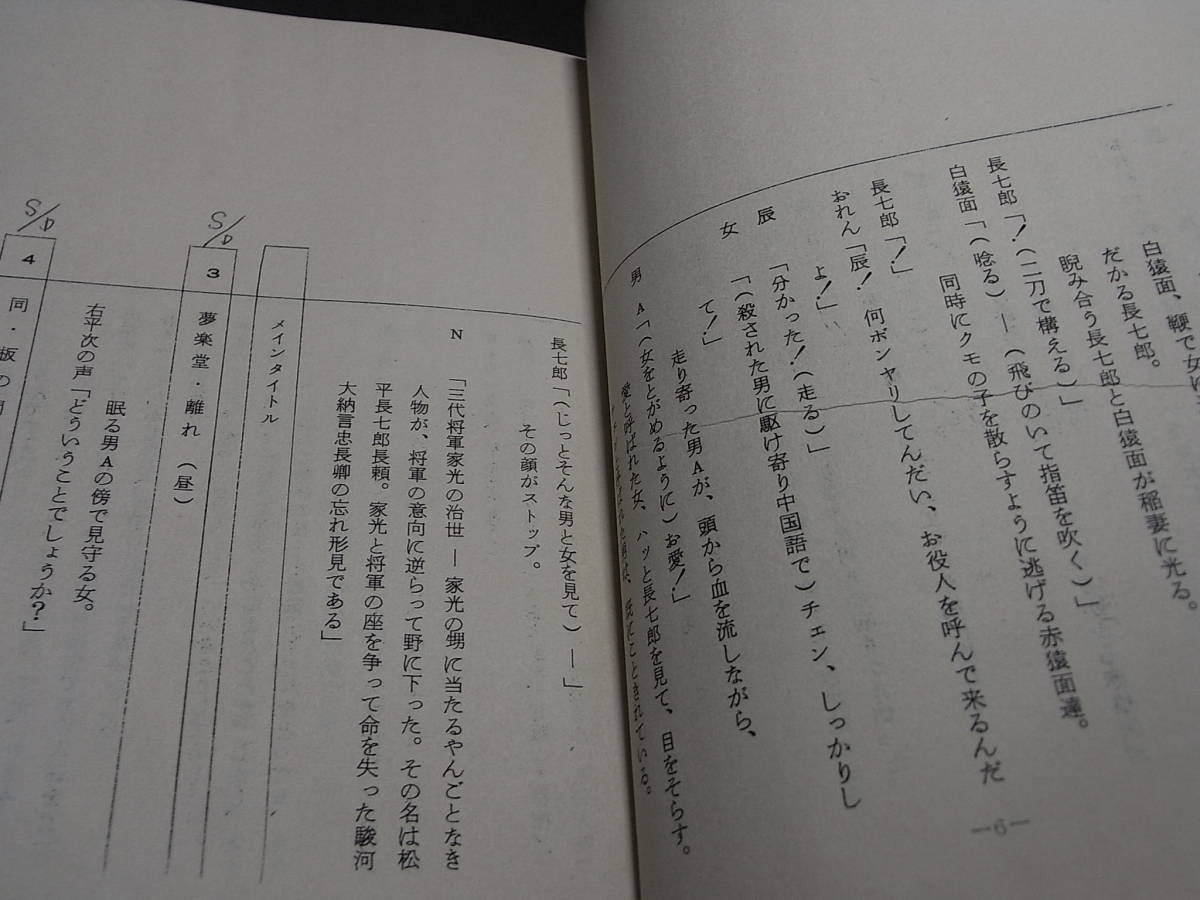 白猿面、鞭で女に
だかる長七郎。
睨み合う長七郎と白猿面が稲妻に光る。
長七郎「！（二刀で構える）」
白猿面「（唸る）―（飛びのいて指笛を吹く）」
同時にクモの子を散らすように逃げる赤猿面達。
おれん「辰！何ボンヤリしてんだい、お役人を呼んで来るんだ
よ！」
長七郎「！」
辰「分かった！（走る）」
女「（殺された男に駆け寄り中国語で）チェン、しっかりし
て！」
走り寄った男Aが、頭から血を流しながら、
男A「（女をとがめるように）お愛！」
愛と呼ばれた女、ハッと長七郎を見て、目をそらす。
既にこときれている。
―6―
長七郎「（じっとそんな男と女を見て）―」
その顔がストップ。
N「三代将軍家光の治世―家光の甥に当たるやんごとなき
人物が、将軍の意向に逆らって野に下った。その名は松
平長七郎長頼。家光と将軍の座を争って命を失った駿河
大納言忠長卿の忘れ形見である」
メインタイトル
S/D
3 夢楽堂・離れ（昼）
眠る男Aの傍で見守る女。
右平次の声「どういうことでしょうか？」
S/D
4 同・板の間